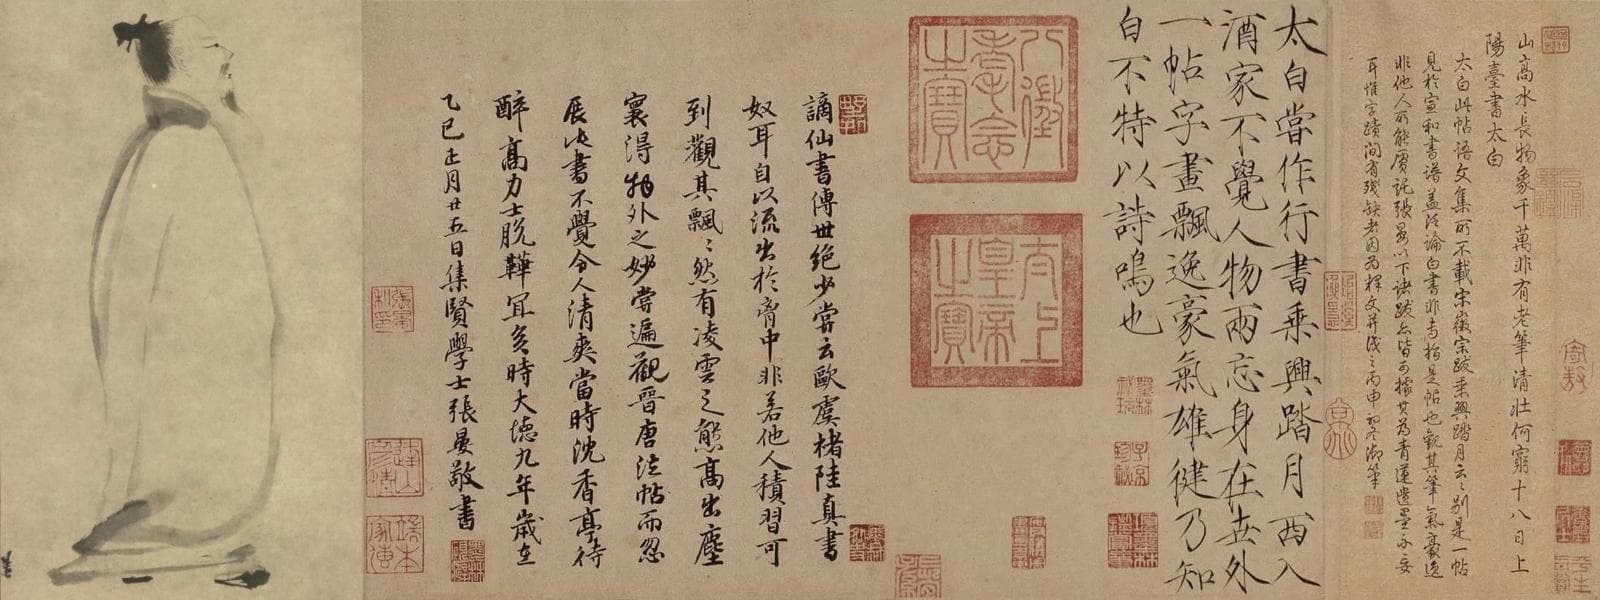 山高水長物象千萬非有老筆清壯何窮十八日上
陽臺書太白
太白此帖語文集所不載宋徽宗跋乘興踏月云云別是一帖
見於宣和書譜蓋泛論白書非專指是帖也觀其筆氣豪逸
非他人所能贗託張晏以下諸跋亦皆可據其為青蓮遺墨不妄
耳惟字蹟間有殘缺者因為釋文并識之丙申初冬御筆
太白嘗作行書乘興踏月西入
酒家不覺人物兩忘身在世外
一帖字畫飄逸豪氣雄健乃知
白不特以詩鳴也
八徵耄念之寶
太上皇帝之寶
謫仙書傳世絕少嘗云歐虞褚陸真書
奴耳自以流出於胷中非若他人積習可
到觀其飄〻然有凌雲之態高出塵
寰得物外之妙嘗遍觀晉唐法帖而忽
展此書不覺令人清爽當時沈香亭待
醉高力士脫鞾宜矣時大德九年歲在
乙巳正月廿五日集賢學士張晏敬書